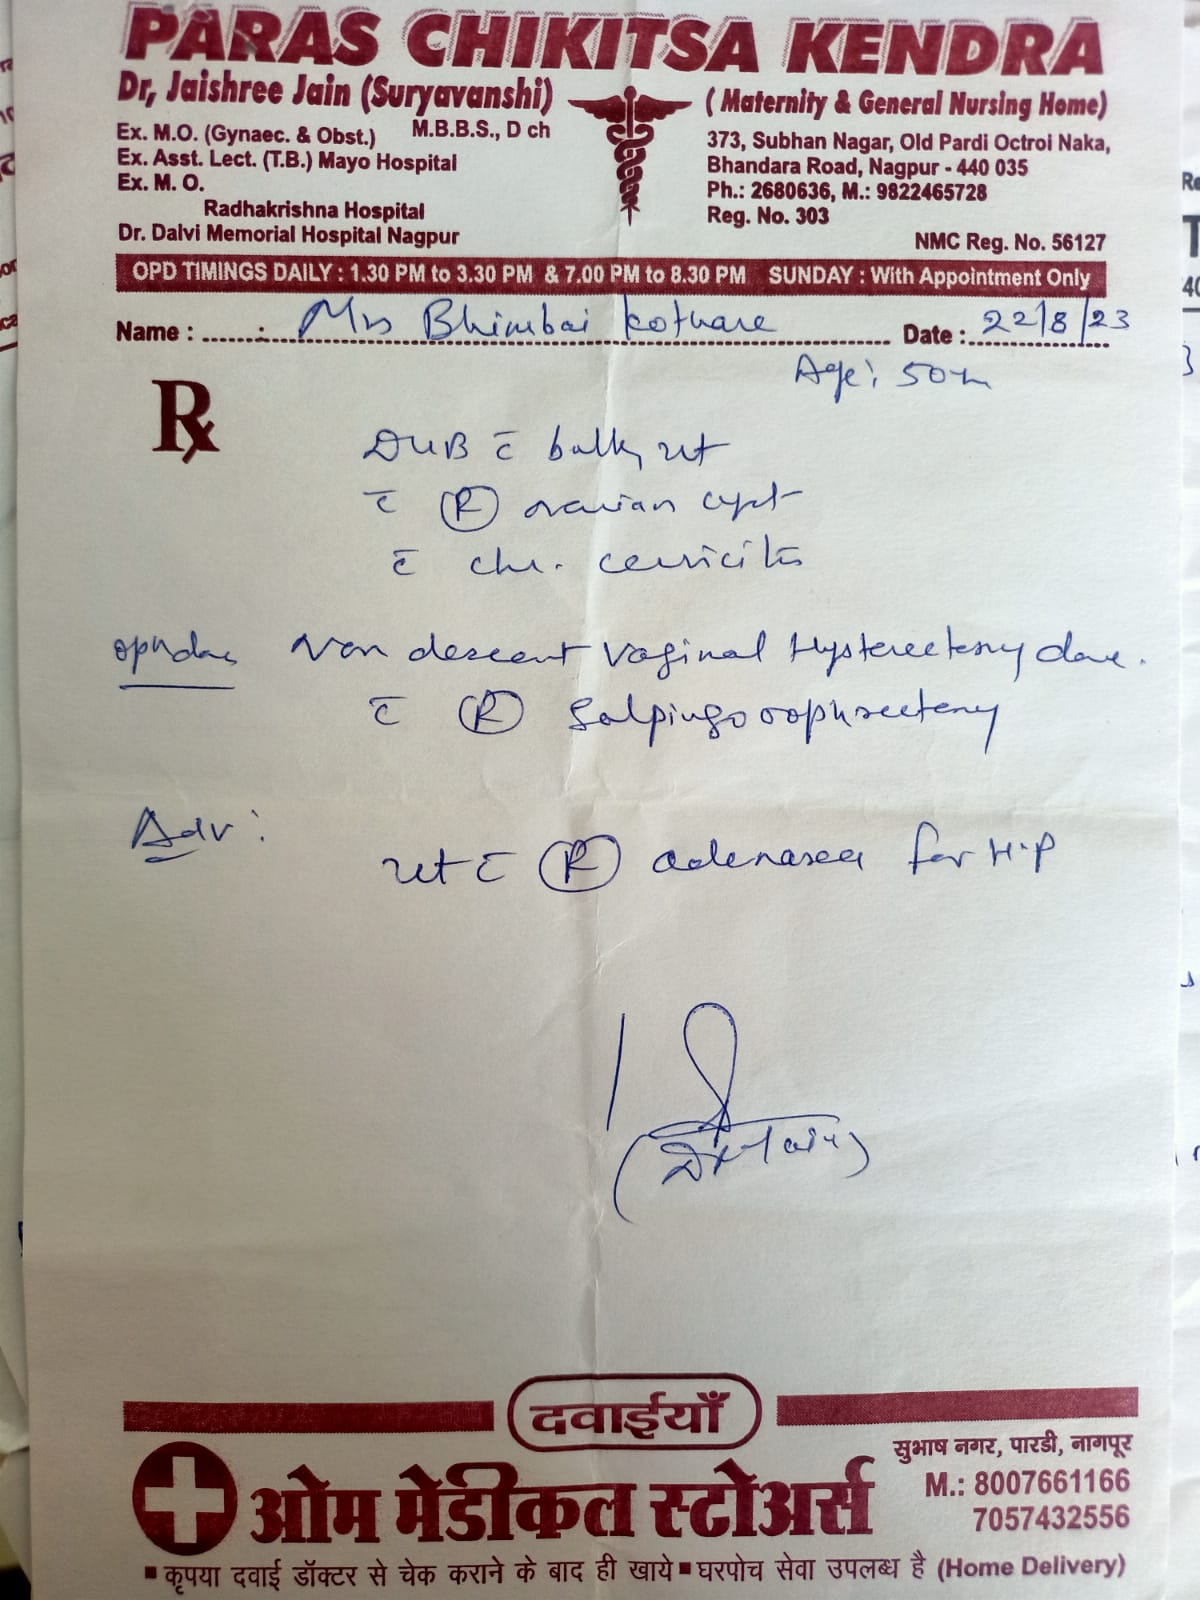 PARAS CHIKITSA KENDRA
Dr, Jaishree Jain (Suryavanshi)
M.B.B.S., D ch
Ex. M.O. (Gynaec. & Obst.)
Ex. Asst. Lect. (T.B.) Mayo Hospital
Ex. M. O.
Radhakrishna Hospital
Dr. Dalvi Memorial Hospital Nagpur
( Maternity & General Nursing Home)
373, Subhan Nagar, Old Pardi Octroi Naka,
Bhandara Road, Nagpur - 440 035
Ph.: 2680636, M.: 9822465728
Reg. No. 303
NMC Reg. No. 56127
OPD TIMINGS DAILY : 1.30 PM to 3.30 PM & 7.00 PM to 8.30 PM SUNDAY : With Appointment Only
Name : Mrs Bhimbai Kothare Date : 22/8/23
Age: 50
Rx
DUB c̄ bulky ut
c̄ Ⓡ ovarian cyst
c̄ chr. cervicitis
Non descent vaginal Hysterectomy done.
c̄ Ⓡ Salpingo oophrectomy
Adv:
ut c̄ Ⓡ adenaxea for H.P
(Dr Jain)
दवाईयाँ
ओम मेडीकल स्टोअर्स
सुभाष नगर, पारडी, नागपूर
M.: 8007661166
7057432556
▪ कृपया दवाई डॉक्टर से चेक कराने के बाद ही खाये ▪ घरपोच सेवा उपलब्ध है (Home Delivery)